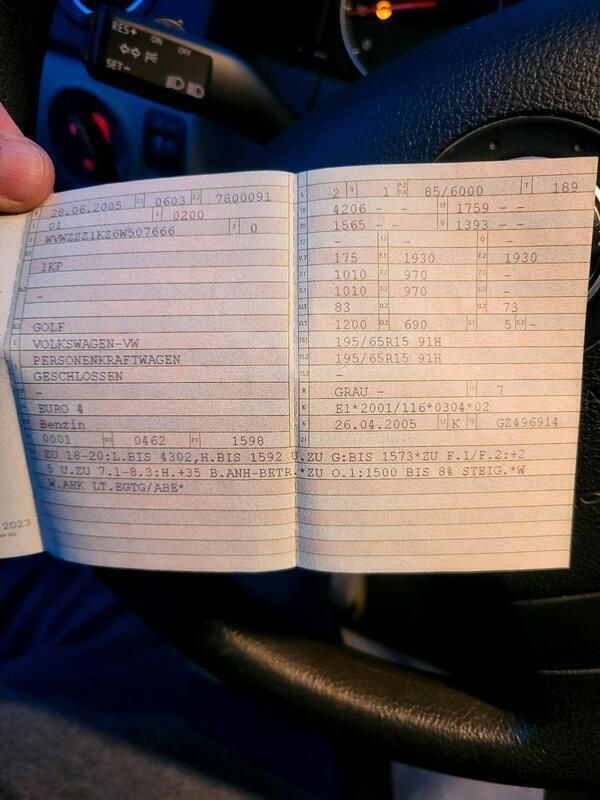 RES+
ON OFF
SET-
28.06.2005 0603 7800091
01 0200
WVWZZZ1KZ6W507666 0
1KP
-
GOLF
VOLKSWAGEN-VW
PERSONENKRAFTWAGEN
GESCHLOSSEN
-
EURO 4
Benzin
0001 0462 1598
2 1 85/6000 189
4206 - - 1759 - -
1565 - - 1393 - -
- - -
175 1930 1930
1010 970 -
1010 970 -
83 - 73
1200 690 5 -
195/65R15 91H
195/65R15 91H
-
GRAU - 7
E1*2001/116*0304*02
26.04.2005 K GZ496914
ZU 18-20:L.BIS 4302,H.BIS 1592 U.ZU G:BIS 1573*ZU F.1/F.2:+2
5 U.ZU 7.1-8.3:H.+35 B.ANH-BETR.*ZU O.1:1500 BIS 8% STEIG.*W
W.AHK LT.EGTG/ABE*
2023